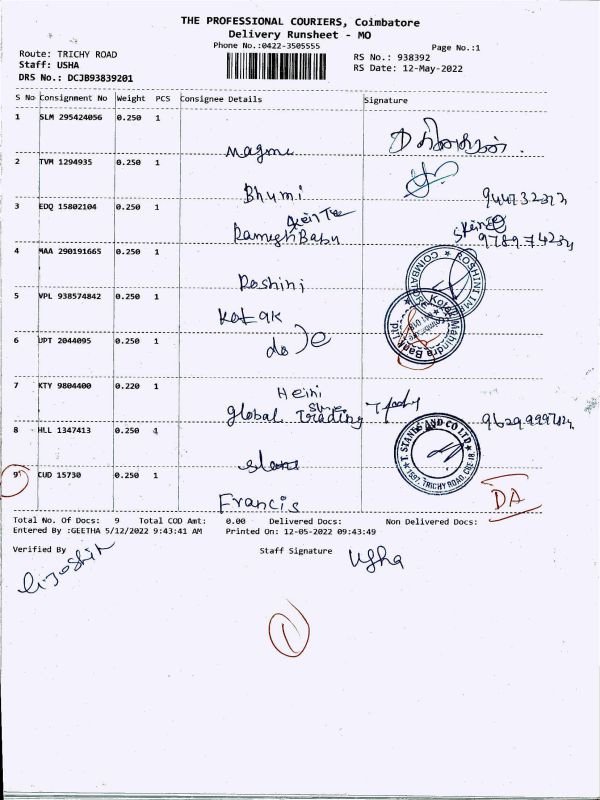 THE PROFESSIONAL COURIERS, Coimbatore
Delivery Runsheet - MO
Phone No.:0422-3505555
Page No.:1
Route: TRICHY ROAD
RS No.: 938392
Staff: USHA
RS Date: 12-May-2022
DRS No.: DCJB93839201
S No Consignment No Weight PCS Consignee Details Signature
1 SLM 295424056 0.250 1
Magme
2 TVM 1294935 0.250 1
Bhumi
3 EDQ 15802104 0.250 1
RameshBabu
4 MAA 290191665 0.250 1
Roshini
ROSHINI COIMBATORE
5 VPL 938574842 0.250 1
Kotak
Kotak Mahindra Bank
6 JPT 2044095 0.250 1
do
7 KTY 9804400 0.220 1
Heini
Global Trading
8 HLL 1347413 0.250 1
Stanes
T. STANES AND CO LTD
1597, TRICHY ROAD, CBE-18.
9 CUD 15730 0.250 1
Francis
DA
Total No. Of Docs: 9 Total COD Amt: 0.00 Delivered Docs: Non Delivered Docs:
Entered By :GEETHA 5/12/2022 9:43:41 AM Printed On: 12-05-2022 09:43:49
Verified By Staff Signature
Usha
1